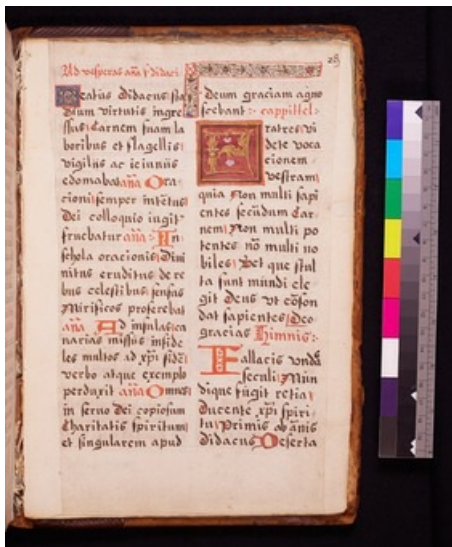 Ad vesperas aña s. didaci
Beatus Didacus sta
dium virtutis ingre
ssus: Carnem suam la
boribus et flagellis
vigiliis ac ieiuniis
edomabat aña Ora
cioni semper intētus
Dei colloquio iugit
fruebatur aña: In
schola oracionis Divi
nitus eruditus de re
bus celestibus sensus
Mirificos proferebat
aña Ad insulas ca
narias missus infide
les multos ad xp̄i fidē
verbo atque exemplo
perduxit aña Omnes
in servo Dei copiosum
Charitatis spiritum
et singularem apud
28
Deum graciam agno
scebant:- cappittel:
Fratres: vi
dete voca
cionem
vestram:
quia Non multi sapi
entes secūdum Car
nem: Non multi po
tentes nō multi no
biles: Set que stul
ta sunt mundi ele
git Deus vt cōfon
dat sapientes: Deo
gracias Himnis:-
Fallacis vndā
seculi: Mūn
dique fugit retia:
Ducente xp̄i spiri
tu: Primis ab ānis
didacus Deserta